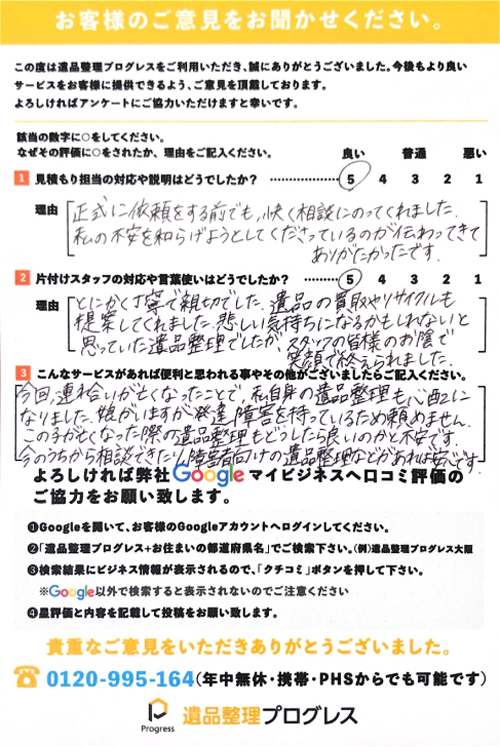 お客様のご意見をお聞かせください。
この度は遺品整理プログレスをご利用いただき、誠にありがとうございました。今後もより良い
サービスをお客様に提供できるよう、ご意見を頂戴しております。
よろしければアンケートにご協力いただけますと幸いです。
該当の数字に○をしてください。
なぜその評価に○をされたか、理由をご記入ください。
良い 普通 悪い
1 見積もり担当の対応や説明はどうでしたか? 5 4 3 2 1
理由
正式に依頼をする前でも、快く相談にのってくれました。
私の不安を和らげようとしてくださっているのが伝わってきて
ありがたかったです。
2 片付けスタッフの対応や言葉使いはどうでしたか? 5 4 3 2 1
理由
とにかく丁寧で親切でした。遺品の買取やリサイクルも
提案してくれました。悲しい気持ちになるかもしれないと
思っていた遺品整理でしたが、スタッフの皆様のお陰で
笑顔で終えられました。
3 こんなサービスがあれば便利と思われる事やその他がございましたらご記入ください。
今回、連れ合いが亡くなったことで、私自身の遺品整理も心配に
なりました。娘がいますが発達障害を持っているため頼めません。
この子が亡くなった際の遺品整理もどうしたら良いのかと不安です。
今のうちから相談できたり、障害者向けの遺品整理などがあれば安心です。
よろしければ弊社Googleマイビジネスへ口コミ評価の
ご協力をお願い致します。
❶Googleを開いて、お客様のGoogleアカウントへログインしてください。
❷「遺品整理プログレス+お住まいの都道府県名」でご検索下さい。(例)遺品整理プログレス大阪
❸検索結果にビジネス情報が表示されるので、「クチコミ」ボタンを押して下さい。
※Google以外で検索すると表示されないのでご注意ください
❹星評価と内容を記載して投稿をお願い致します。
貴重なご意見をいただきありがとうございました。
0120-995-164(年中無休・携帯・PHSからでも可能です)
Progress 遺品整理プログレス